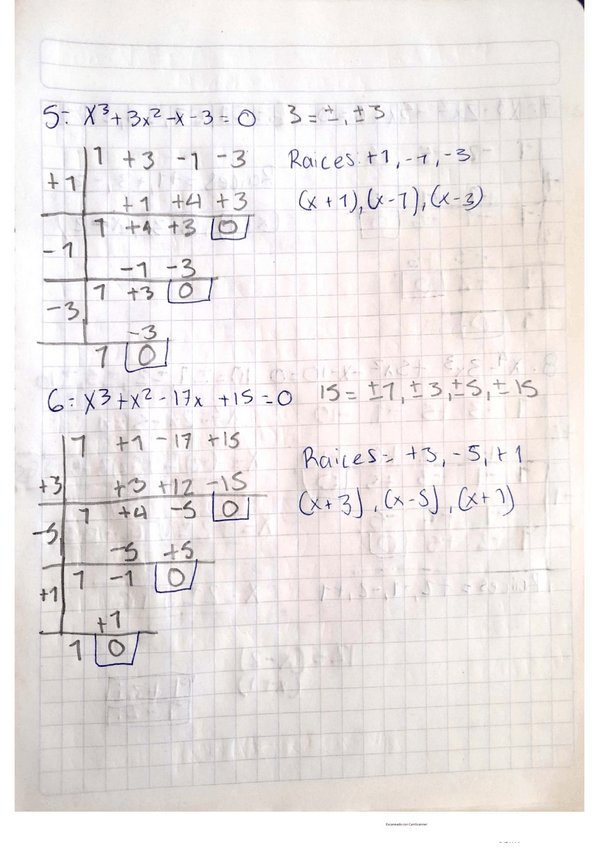 5= x³+3x²-x-3=0 3=±, ±3
1 +3 -1 -3 Raices: +1, -1, -3
+1
+1 +4 +3 (x+1),(x-1),(x-3)
1 +4 +3 0
-1
-1 -3
1 +3 0
-3
-3
1 0
6= x³+x²-17x+15=0 15= ±1,±3,±5,±15
1 +1 -17 +15
Raices= +3, -5, +1
+3 +3 +12 -15
(x+3),(x-5),(x+1)
1 +4 -5 0
-5
-5 +5
1 -1 0
+1
+1
1 0
Escaneado con CamScanner